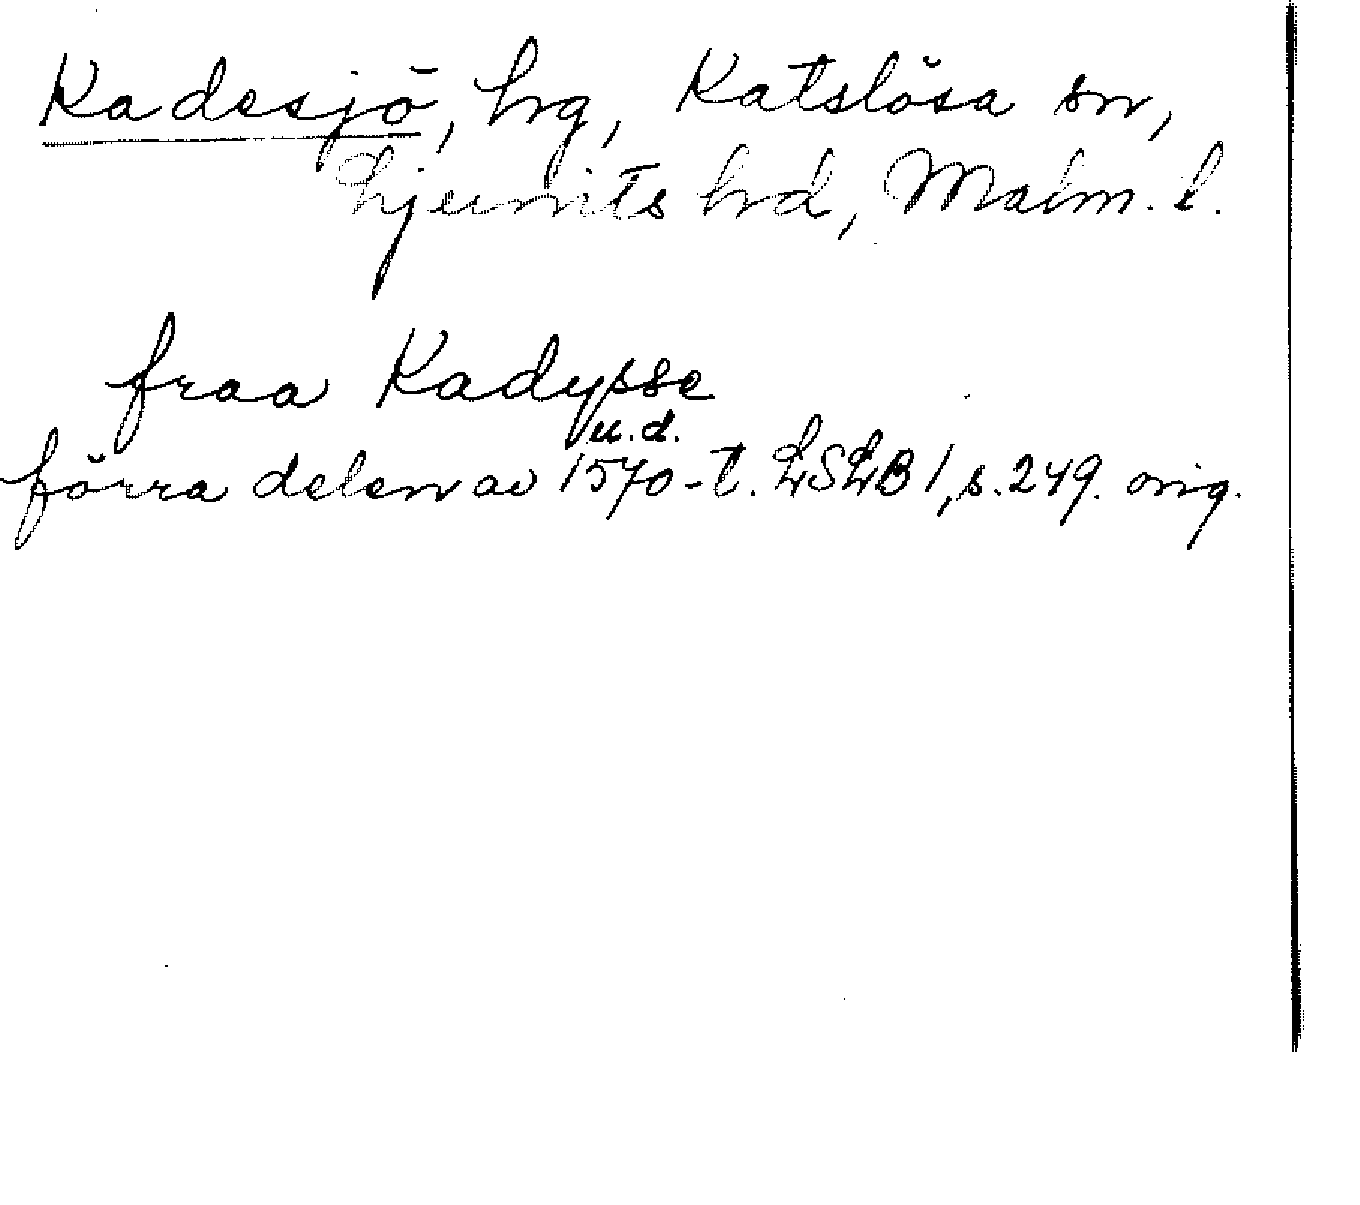 Kadesjö, hg, Katslösa sn,
Ljunits hd, Malm. l.
fraa Kadysse
u.d.
förra delen av 1570-t. LSLB 1, s. 249. orig.